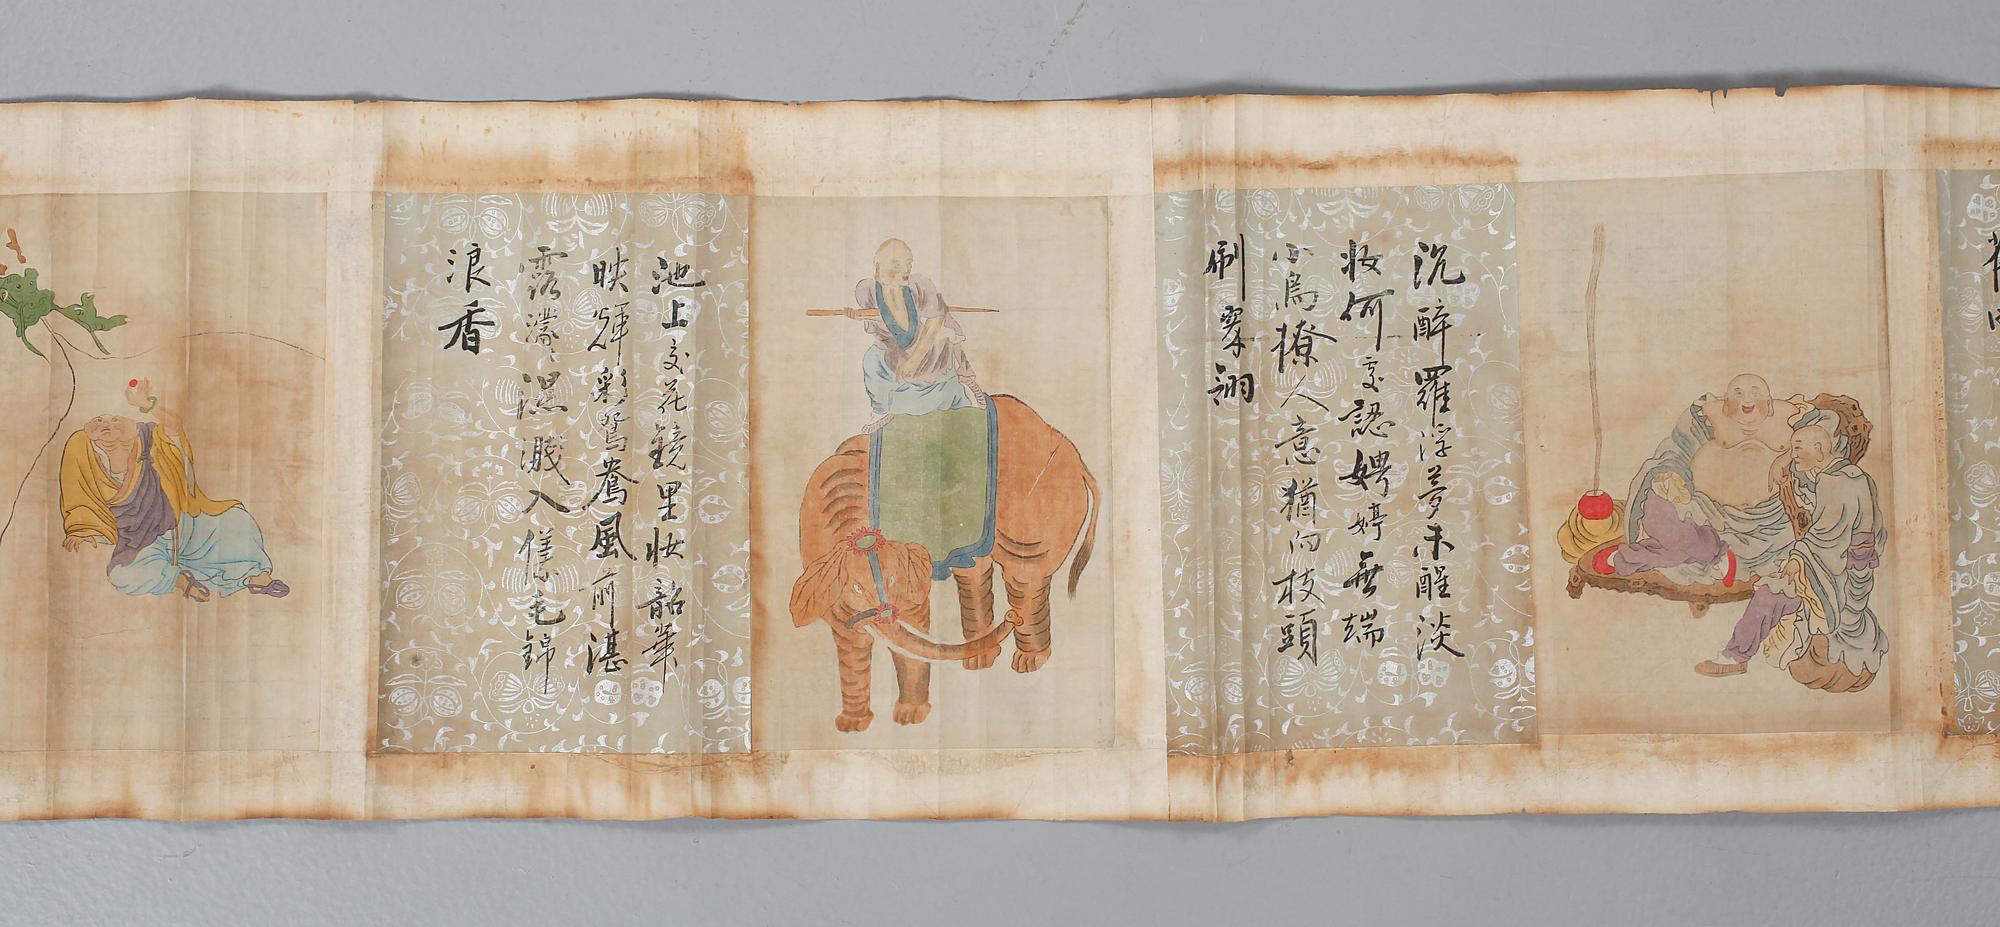 沉醉羅浮夢未醒淡
妝何處認娉婷無端
小鳥撩人意猶向枝頭
刷翠翎
池上交花鏡里妝韶華
映輝彩鴛鴦風前湛
露濛〻濕濺入脩毛錦
浪香